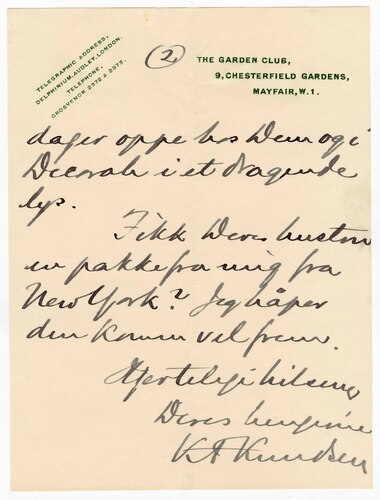 TELEGRAPHIC ADDRESS,
DELPHINIUM, AUDLEY, LONDON.
TELEPHONE,
GROSVENOR 2972 & 2973.
(2)
THE GARDEN CLUB,
9, CHESTERFIELD GARDENS,
MAYFAIR, W.1.
dager oppe hos Dem og i
Decorah i et dragende
lys.
Fikk Deres hustru
en pakke fra mig fra
New York? Jeg håper
den kom vel frem.
Hjertelig hilsen
Deres hengivne
K A Knudsen